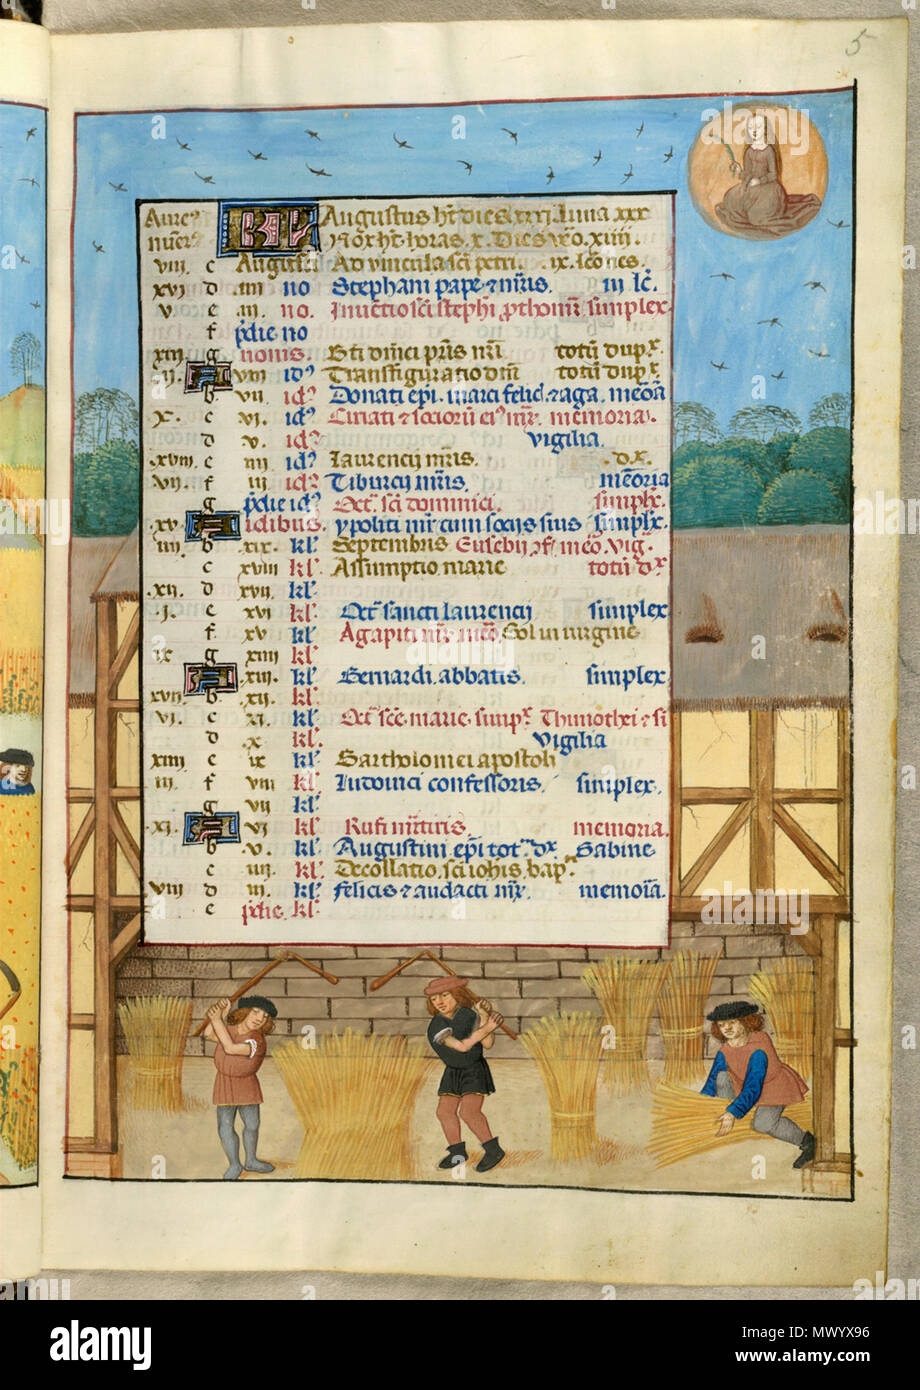 5
Aure⁹ KL Augustus ht dies xxxj. luna xxx
nuer⁹ Nox ht horas x. Dies v͞o xiiii.
viii c Augusti Ad vincula sci petri. ix lcones.
xvi d iiii no Stephani pape ⁊ mris. iii lc̄
v e iii. no. Inuetio sci stephi prothom̄r simplex
f pdie no
xiii g nonis. Bti dmici pris nr̄i totū dupx
.ij. A viii id⁹ Transfiguratio dm̄ totū dupx.
b vii. id⁹ Donati epi. marci felic ⁊ aga. meōa
x. c vi. id⁹ Ciriaci ⁊ socioru ei⁹ mr. memoria.
d v. id⁹ vigilia.
.xviii c iiii id⁹ Laurencij mris. .dx.
.vii. f iii id⁹ Tiburcij mris. mēoria
g pdie id⁹ Oct. sci dominici. simplx.
.xv A idibus. ypoliti mr cum socijs suis simplx.
.iiii. b .xix. kl. Septembris Eusebij cf. meō vig.
c xviii kl. Assumptio marie totū dx
.xii. d xvii. kl.
.j. e xvi kl. Oct. sancti laurencij simplex
f. xv kl. Agapiti mr. meō, Sol in uirgine
ix g xiiii kl.
A .xiii. kl. Bernardi. abbatis. simplex
xvii b. .xii. kl.
vi. c xi. kl. Oct sce. marie. simpx. Thimothei ⁊ si
d .x kl. vigilia
xiiii e ix kl. Bartholomei apostoli
iii. f viii kl. Ludouici confessoris. simplex.
g vii kl.
.xi. A vi kl. Rufi m̄ris. memoria.
b v. kl. Augustini epi tot. dx Sabine
c iiii. kl. Decollatio. sci iohis bapt.
viii d iii. kl. felicis ⁊ audacti mr. memoīa.
e pdie. kl.
alamy
a
Image ID: MWYX96
www.alamy.com